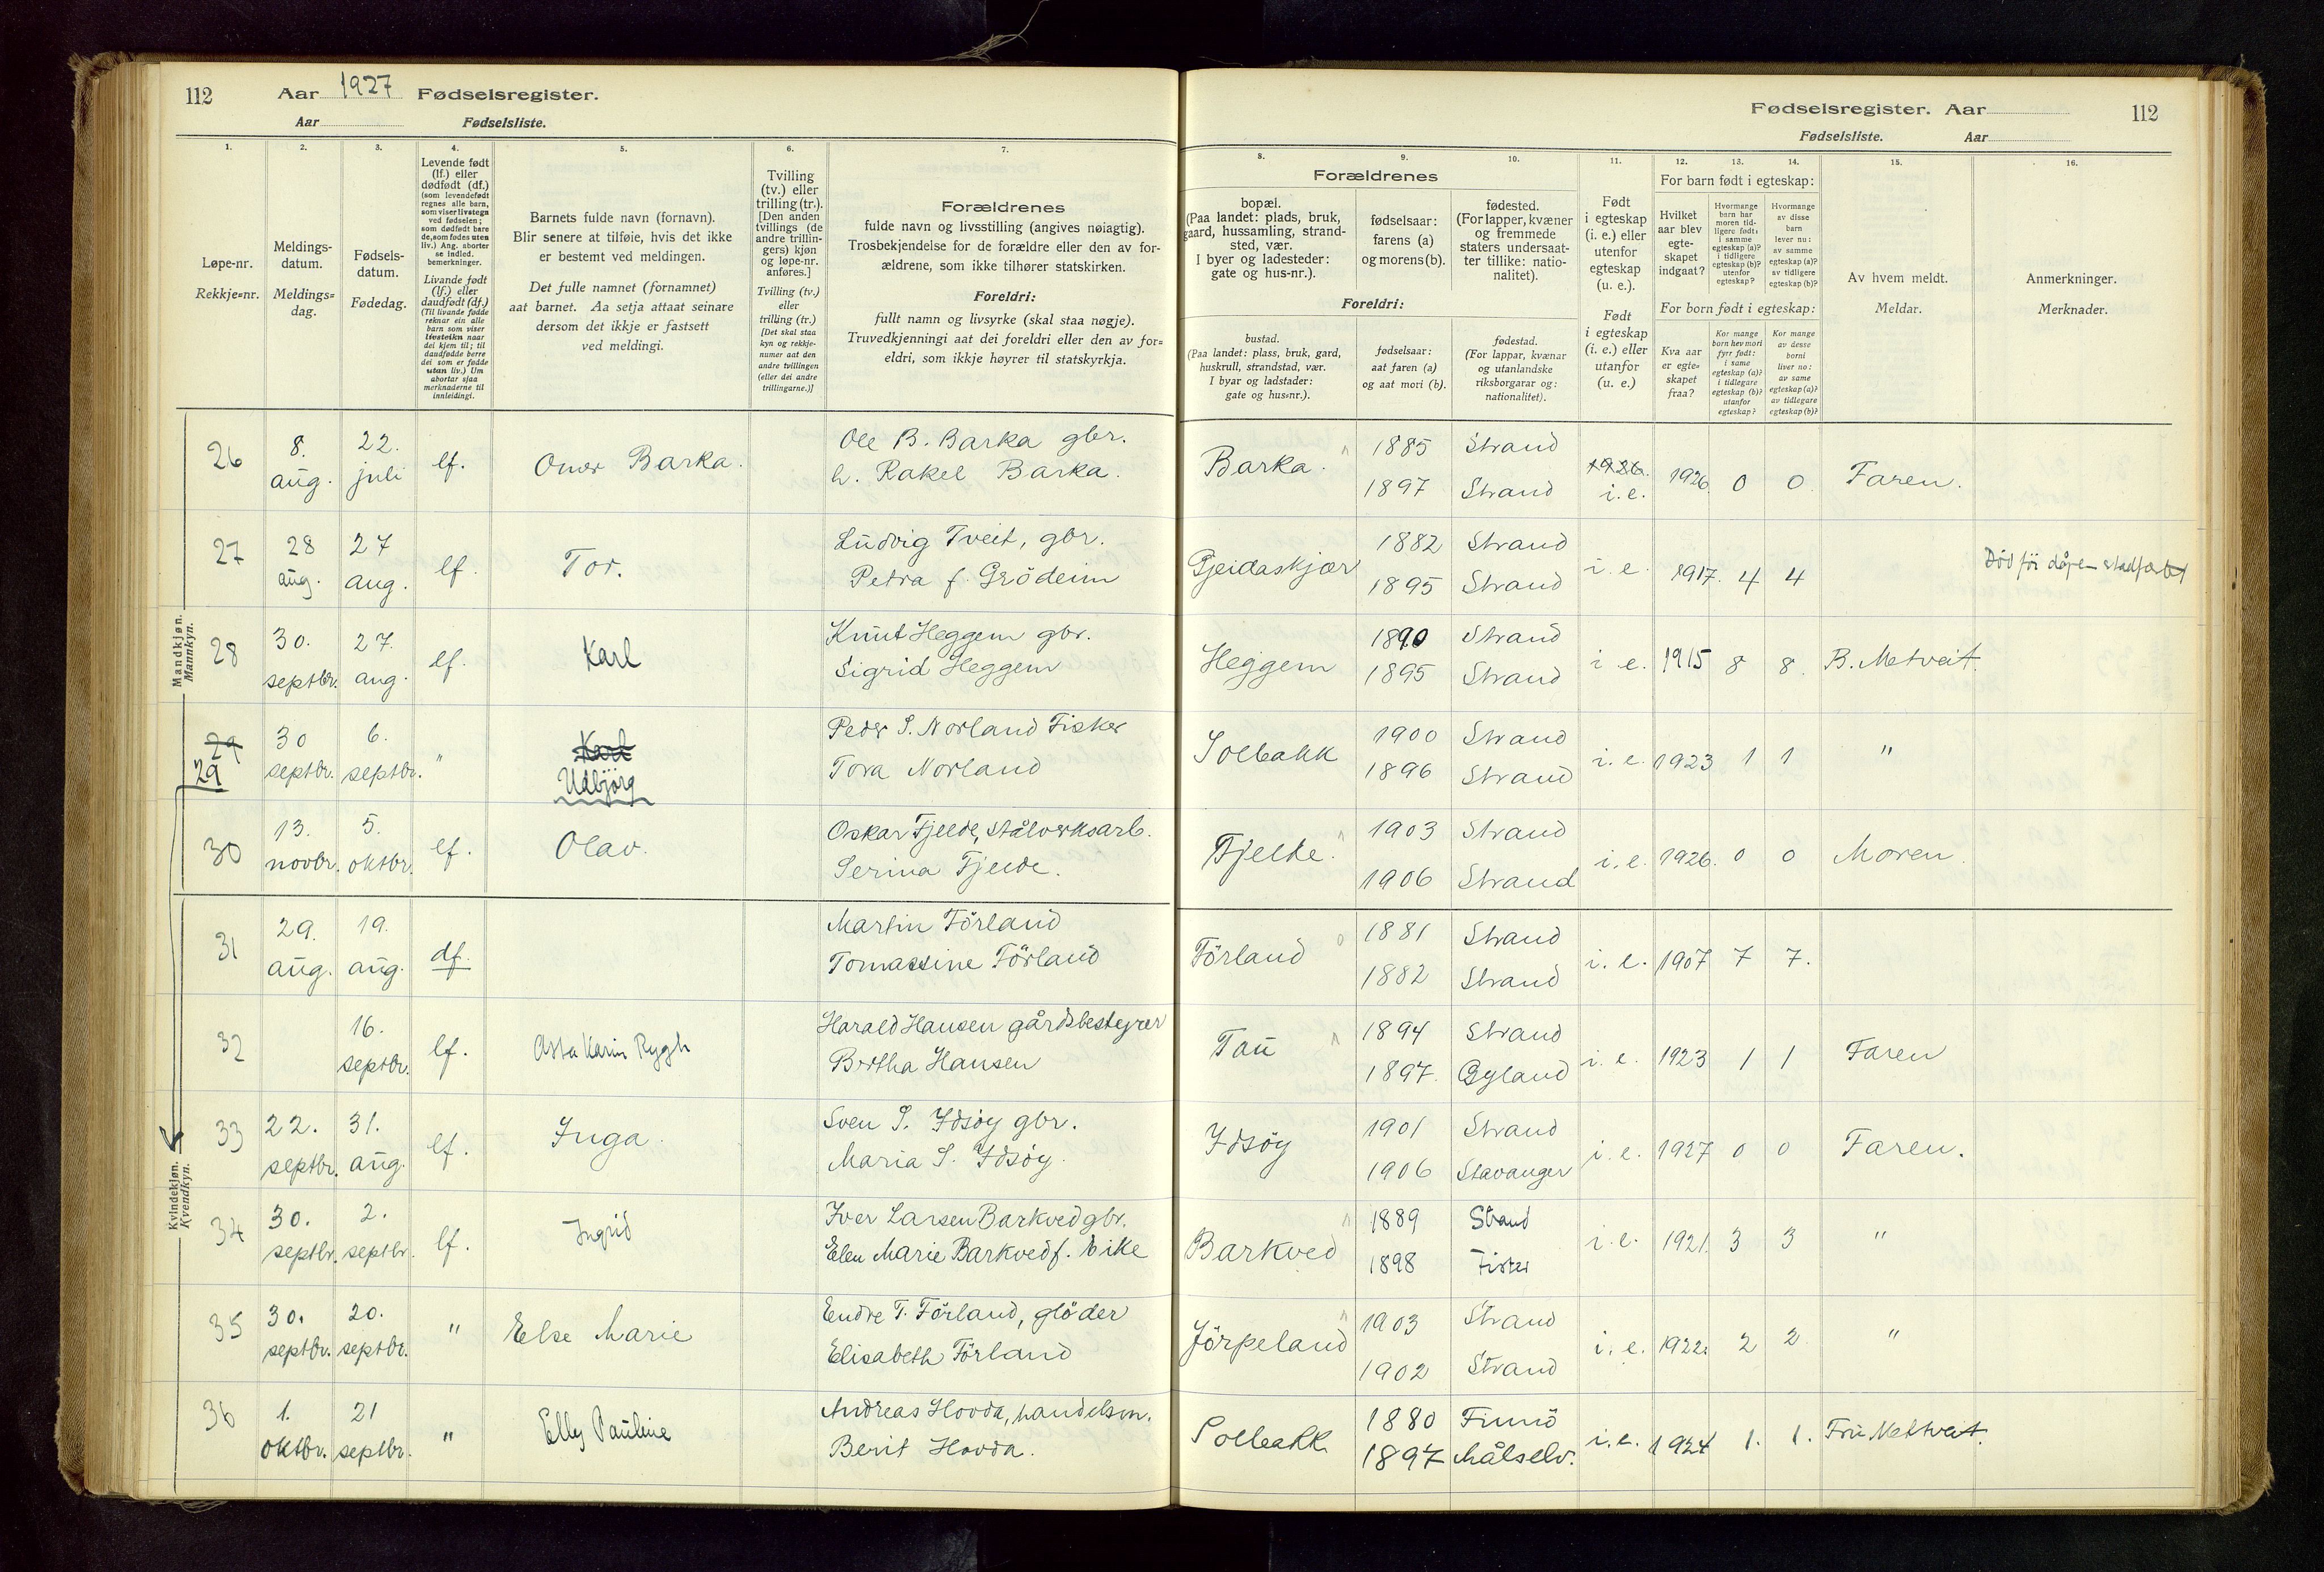 112 Aar 1927 Fødselsregister.
Aar Fødselsliste.
Fødselsregister. Aar 112
Fødselsliste. Aar
1. 2. 3. 4. 5. 6. 7.
Løpe-nr.
Rekkje=nr.
Meldings-
datum.
Meldings=
dag.
Fødsels-
datum.
Fødedag.
Levende født
(lf.) eller
dødfødt (df.)
(som levendefødt
regnes alle barn,
som viser livstegn
ved fødselen;
som dødfødt bare
de, som fødes uten
liv.) Ang. aborter
se indled.
bemerkninger.
Livande født
(lf.) eller
daudfødt (df.)
(Til livande fødde
reknar ein alle
barn som viser
livsteikn naar
dei kjem til; til
daudfødde berre
dei som er fødde
utan liv.) Um
abortar sjaa
merknaderne til
innleidingi.
Barnets fulde navn (fornavn).
Blir senere at tilføie, hvis det ikke
er bestemt ved meldingen.
Det fulle namnet (fornamnet)
aat barnet. Aa setja attaat seinare
dersom det ikkje er fastsett
ved meldingi.
Tvilling
(tv.) eller
trilling (tr.).
[Den anden
tvillings (de
andre trillin-
gers) kjøn
og løpe-nr.
anføres.]
Tvilling (tv.)
eller
trilling (tr.)
[Det skal staa
kyn og rekkje-
numer aat den
andre tvillingen
(eller dei andre
trillingarne.)]
Forældrenes
fulde navn og livsstilling (angives nøiagtig).
Trosbekjendelse for de forældre eller den av for-
ældrene, som ikke tilhører statskirken.
Foreldri:
fullt namn og livsyrke (skal staa nøgje).
Truvedkjenningi aat dei foreldri eller den av for=
eldri, som ikkje høyrer til statskyrkja.
8. 9. 10. 11. 12. 13. 14. 15. 16.
Forældrenes
bopæl.
(Paa landet: plads, bruk,
gaard, hussamling, strand-
sted, vær.
I byer og ladesteder:
gate og hus-nr.).
fødselsaar:
farens (a)
og morens (b).
fødested.
(For lapper, kvæner
og fremmede
staters undersaat-
ter tillike: natio-
nalitet).
Foreldri:
bustad.
(Paa landet: plass, bruk, gard,
huskrull, strandstad, vær.
I byar og ladstader:
gate og hus=nr.).
fødselsaar:
aat faren (a)
og aat mori (b).
fødestad.
(For lappar, kvænar
og utanlandske
riksborgarar og:
nationalitet).
Født
i egteskap
(i. e.) eller
utenfor
egteskap
(u. e.).
Født
i egteskap
(i. e.) eller
utanfor
(u. e.)
For barn født i egteskap:
Hvilket
aar blev
egte-
skapet
indgaat?
Hvormange
barn har
moren tid-
ligere født:
i samme
egteskap (a)?
i tidligere
egteskap (b)?
utenfor
egteskap?
Hvormange
av disse
barn
lever nu:
av samme
egteskap (a)?
av tidligere
egteskap (b)?
For born født i egteskap:
Kva aar
er egte=
skapet
fraa?
Kor mange
born hev mori
fyrr født:
i same
egteskap (a)?
i tidlegare
egteskap (b)?
utanfor
egteskap?
Kor mange
av desse
borni
liver no:
av same
egteskap (a)?
av tidlegare
egteskap (b)?
Av hvem meldt.
Meldar.
Anmerkninger.
Merknader.
Mandkjøn.
Mannkyn.
26 8. aug. 22. juli lf. Omar Barka. Ole B. Barka gbr. Barka. 1885 Strand 1926. 1926. 0 0 Faren.
h. Rakel Barka. 1897 Strand i. e.
27 28 aug. 27 aug. lf. Tor. Ludvig Tveit, gbr. Gjeidaskjær 1882 Strand i. e. 1917. 4 4 Död för dåpen stadfæstet
Petra f. Grödeim 1895 Strand
28 30. septbr. 27. aug. lf. Karl Knut Heggem gbr. Heggem 1890 Strand i. e. 1915 8 8. B. Metveit.
Sigrid Heggem 1895 Strand
29 30 septbr. 6. septbr. " Karl Peder S. Norland Fisker Solbakk 1900 Strand i. e. 1923 1 1 "
29 Udbjörg Tora Norland 1896 Strand
30 13. novbr. 5. oktbr. lf. Olav. Oskar Fjelde, stålverksarb. Fjelde. 1903 Strand i. e. 1926. 0 0 Moren.
Serina Fjelde. 1906 Strand
Kvindekjøn.
Kvendkyn.
31 29. aug. 19. aug. df. Martin Förland Förland 1881 Strand i. e. 1907 7 7.
Tomassine Förland 1882 Strand
32 16. septbr. lf. Asta Karin Rygh Harald Hansen gårdsbestyrer Tau 1894 Strand i. e. 1923 1 1 Faren
Bertha Hansen 1897. Gyland
33 22. septbr. 31. aug. lf. Inga. Sven S. Idsöy gbr. Idsöy 1901 Strand i. e. 1927 0 0 Faren.
Maria S. Idsöy. 1906 Stavanger
34 30. septbr. 2. septbr. lf. Ingrid Iver Larsen Barkved gbr. Barkved 1889 Strand i. e. 1921. 3 3 "
Elen Marie Barkved f. Eike 1898 Fister
35 30. septbr. 20. septbr. " Else Marie Endre T. Förland, glöder Jörpeland 1903 Strand i. e. 1922. 2 2 "
Elisabeth Förland 1902 Strand
36 1. oktbr. 21 septbr. " Elly Pauline Andreas Hovda, handelsm. Solbakk 1880 Finnö i. e. 1924 1. 1. Fru Mettveit.
Berit Hovda. 1897 Målselv.